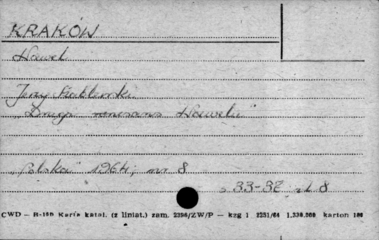 KRAKÓW
Wawel
Jerzy
"Drugi renesans Wawelu"
"Polska" 1964, nr 8
s. 33-37, il. 8
CWD — H-108 Karta katal. (z liniat.) zam. 2294/ZW/P — kzg 1 2251/64 1,330.000 karton 160